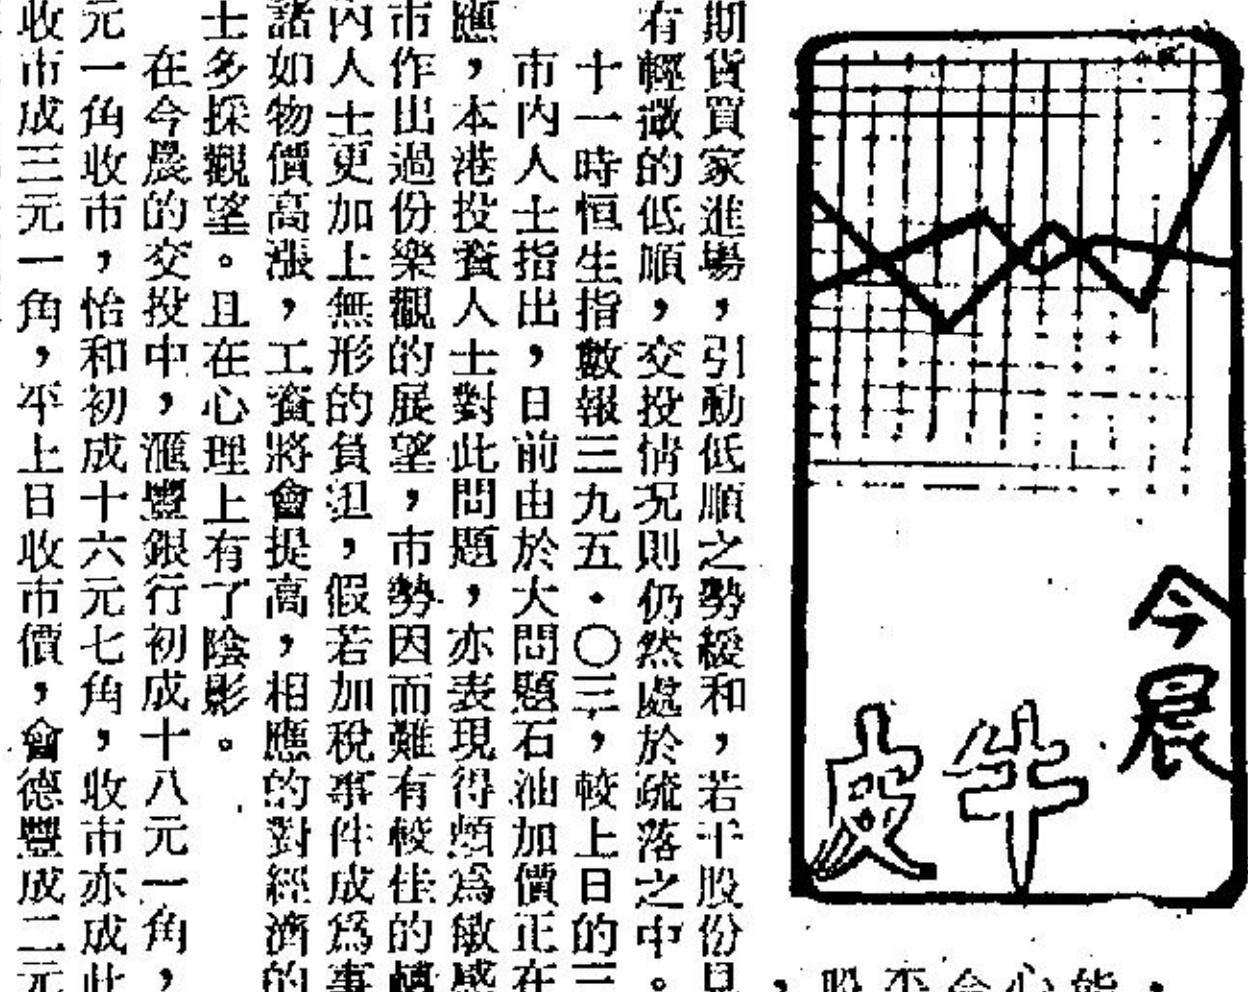 今晨
牛皮
期貨買家進場，引動低順之勢緩和，若干股份
有輕微的低順，交投情況則仍然處於疏落之中。
十一時恒生指數報三九五・〇三，較上日的三
市內人士指出，日前由於大問題石油加價正在
應，本港投資人士對此問題，亦表現得頗爲敏感
市作出過份樂觀的展望，市勢因而難有較佳的轉
內人士更加上無形的負担，假若加稅事件成爲事
諸如物價高漲，工資將會提高，相應的對經濟的
士多採觀望。且在心理上有了陰影。
在今晨的交投中，滙豐銀行初成十八元一角，
元一角收市，怡和初成十六元七角，收市亦成此
收市成三元一角，平上日收市價，會德豐成二元